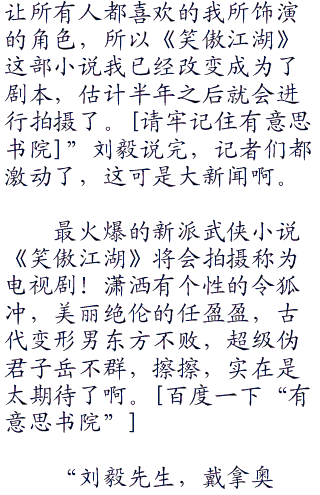 让所有人都喜欢的我所饰演
的角色，所以《笑傲江湖》
这部小说我已经改变成为了
剧本，估计半年之后就会进
行拍摄了。[请牢记住有意思
书院]”刘毅说完，记者们都
激动了，这可是大新闻啊。
最火爆的新派武侠小说
《笑傲江湖》将会拍摄称为
电视剧！潇洒有个性的令狐
冲，美丽绝伦的任盈盈，古
代变形男东方不败，超级伪
君子岳不群，擦擦，实在是
太期待了啊。[百度一下“有
意思书院”]
“刘毅先生，戴拿奥